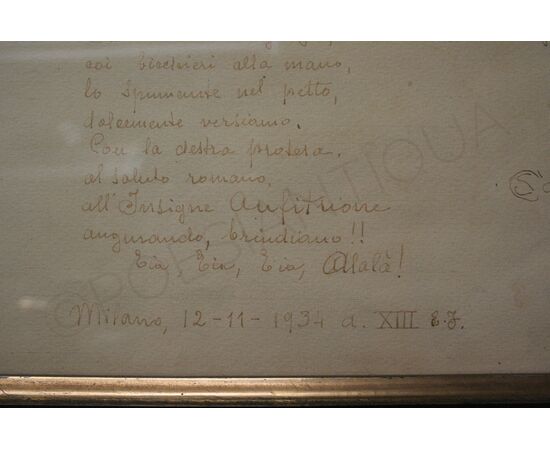 coi bicchieri alla mano,
lo spumante nel petto,
dolcemente versiamo.
Con la destra protesa.
al saluto romano,
all'Insigne Anfitrione
augurando, brindiamo!!
Eia, Eia, Eia, Alalà!
Milano, 12-11-1934 a. XIII E.F.